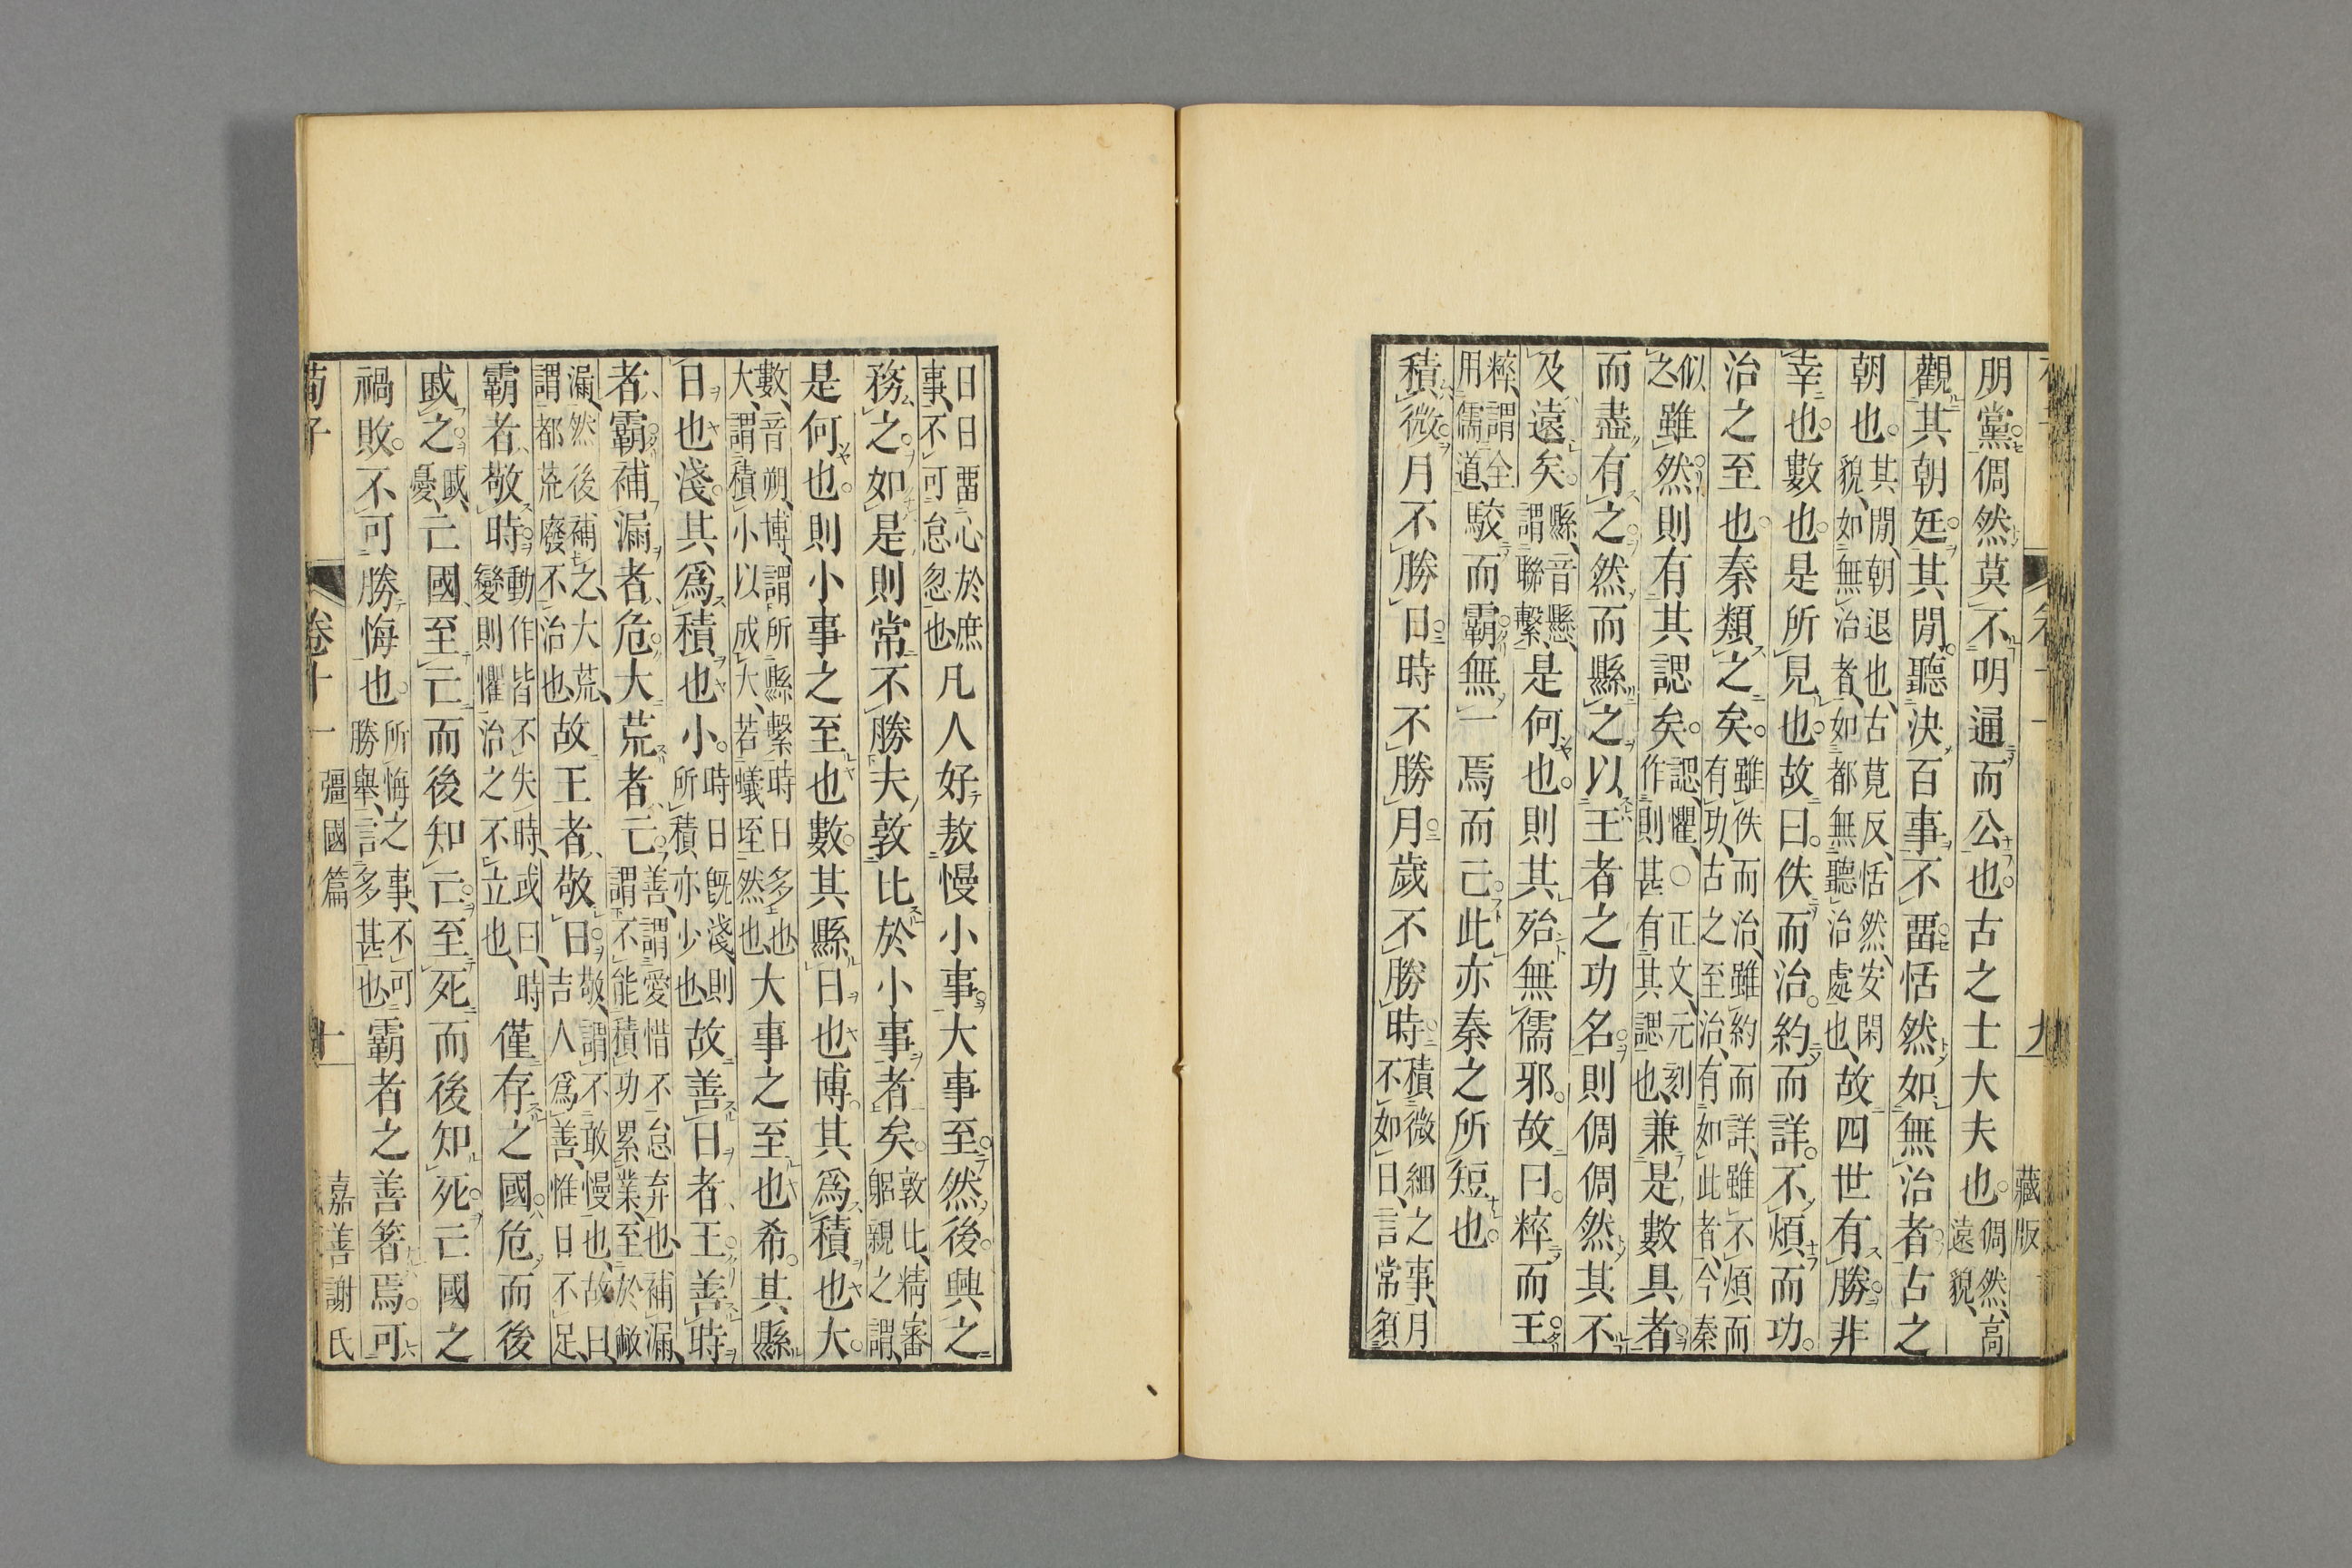 藏版
朋黨倜然莫不明通而公也古之士大夫也倜然高遠貌
觀其朝廷其閒聽決百事不畱恬然如無治者古之
朝也其閒朝退也古莧反恬然安閑貌如無治者如都無聽治處也故四世有勝非
幸也數也是所見也故曰佚而治約而詳不煩而功
治之至也秦類之矣雖佚而治雖約而詳雖不煩而有功古之至治有如此者今秦
似之雖然則有其諰矣諰懼○正文元刻作則甚有其諰也兼是數具者
而盡有之然而縣之以王者之功名則倜倜然其不
及遠矣縣音懸謂聯繫是何也則其殆無儒邪故曰粹而王
粹謂全用儒道駮而霸無一焉而亡此亦秦之所短也
積微月不勝日時不勝月歲不勝時積微細之事月不如日言常須
日日畱心於庶事不可怠忽也凡人好敖慢小事大事至然後興之
務之如是則常不勝夫敦比於小事者矣敦比精審躬親之謂
是何也則小事之至也數其縣日也博其爲積也大
數音朔博謂所縣繫時日多也大謂積小以成大若蟻垤然也大事之至也希其縣
日也淺其爲積也小時日旣淺則所積亦少也故善日者王善時
者霸補漏者危大荒者亡善謂愛惜不怠弃也補漏謂不能積功累業至於敝
漏然後補之大荒謂都荒廢不治也故王者敬日敬謂不敢慢也故曰吉人爲善惟日不足
霸者敬時動作皆不失時或曰時變則懼治之不立也僅存之國危而後
戚之戚憂亡國至亡而後知亡至死而後知死亡國之
禍敗不可勝悔也所悔之事不可勝舉言多甚也霸者之善箸焉可
荀子
卷十一
彊國篇
十
嘉善謝氏